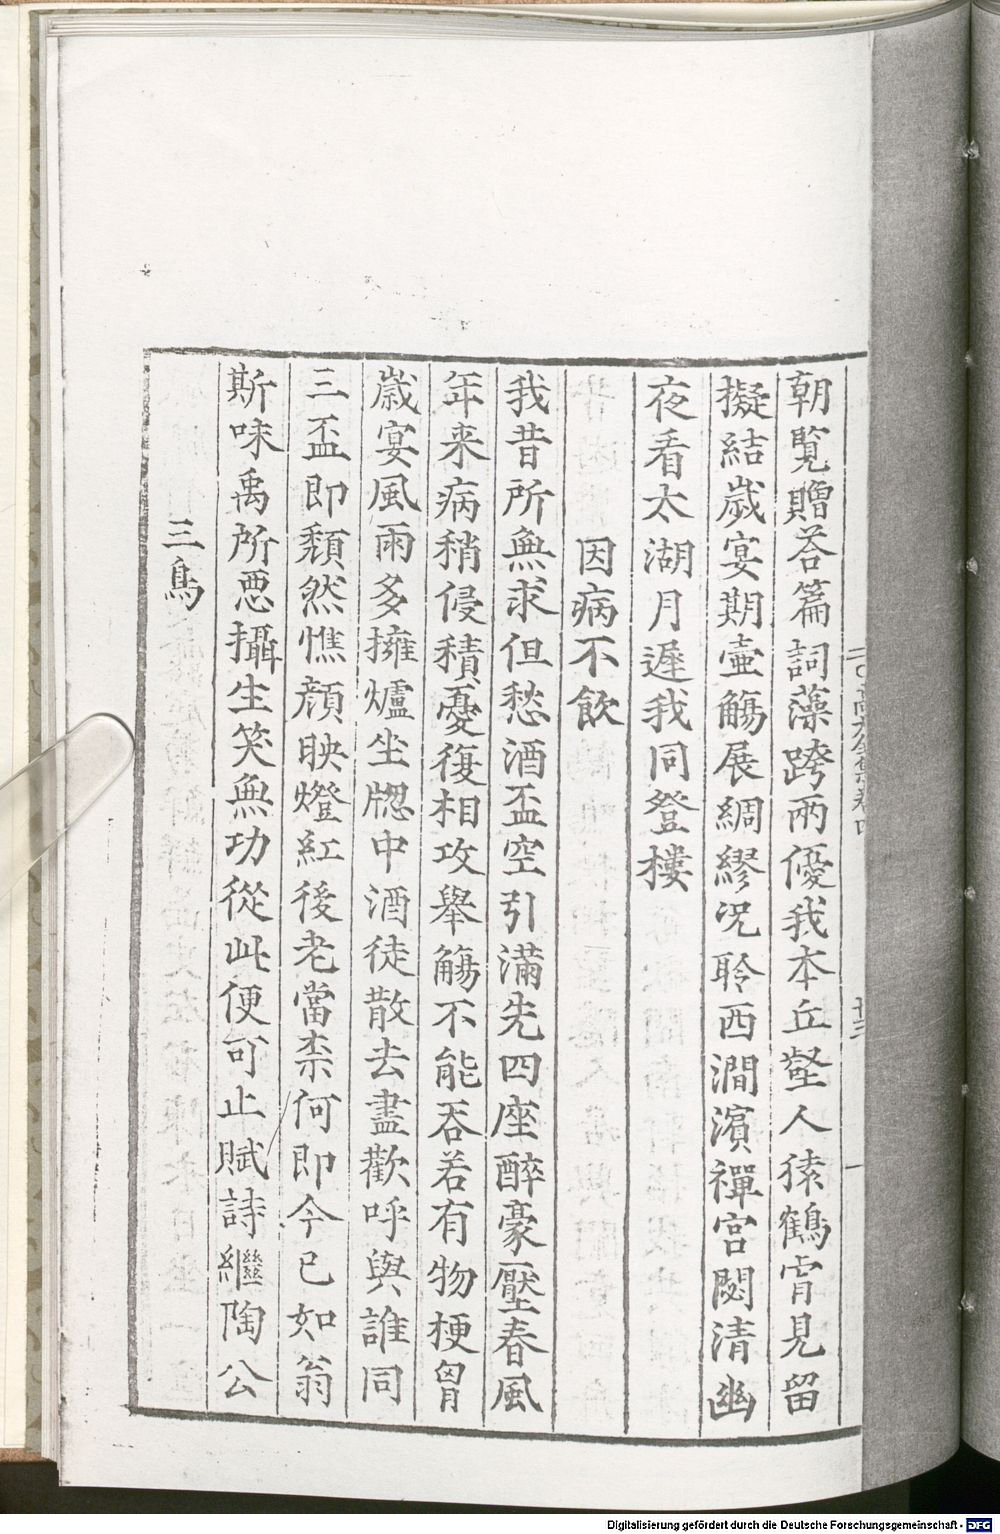 朝覧贈荅篇詞藻跨兩優我本丘壑人猿鶴宵見留
擬結歳宴期壷觴展綢繆况聆西澗濱禪宮閟清幽
夜看太湖月遲我同登樓
因病不飲
我昔所無求但愁酒盃空引滿先四座醉豪壓春風
年来病稍侵積憂復相攻舉觴不能吞若有物梗胷
歳宴風雨多擁爐坐牎中酒徒散去盡歡呼與誰同
三盃即頽然憔顔映燈紅後老當柰何即今已如翁
斯味禹所惡攝生笑無功從此便可止賦詩繼陶公
三鳥
Digitalisierung gefördert durch die Deutsche Forschungsgemeinschaft - DFG